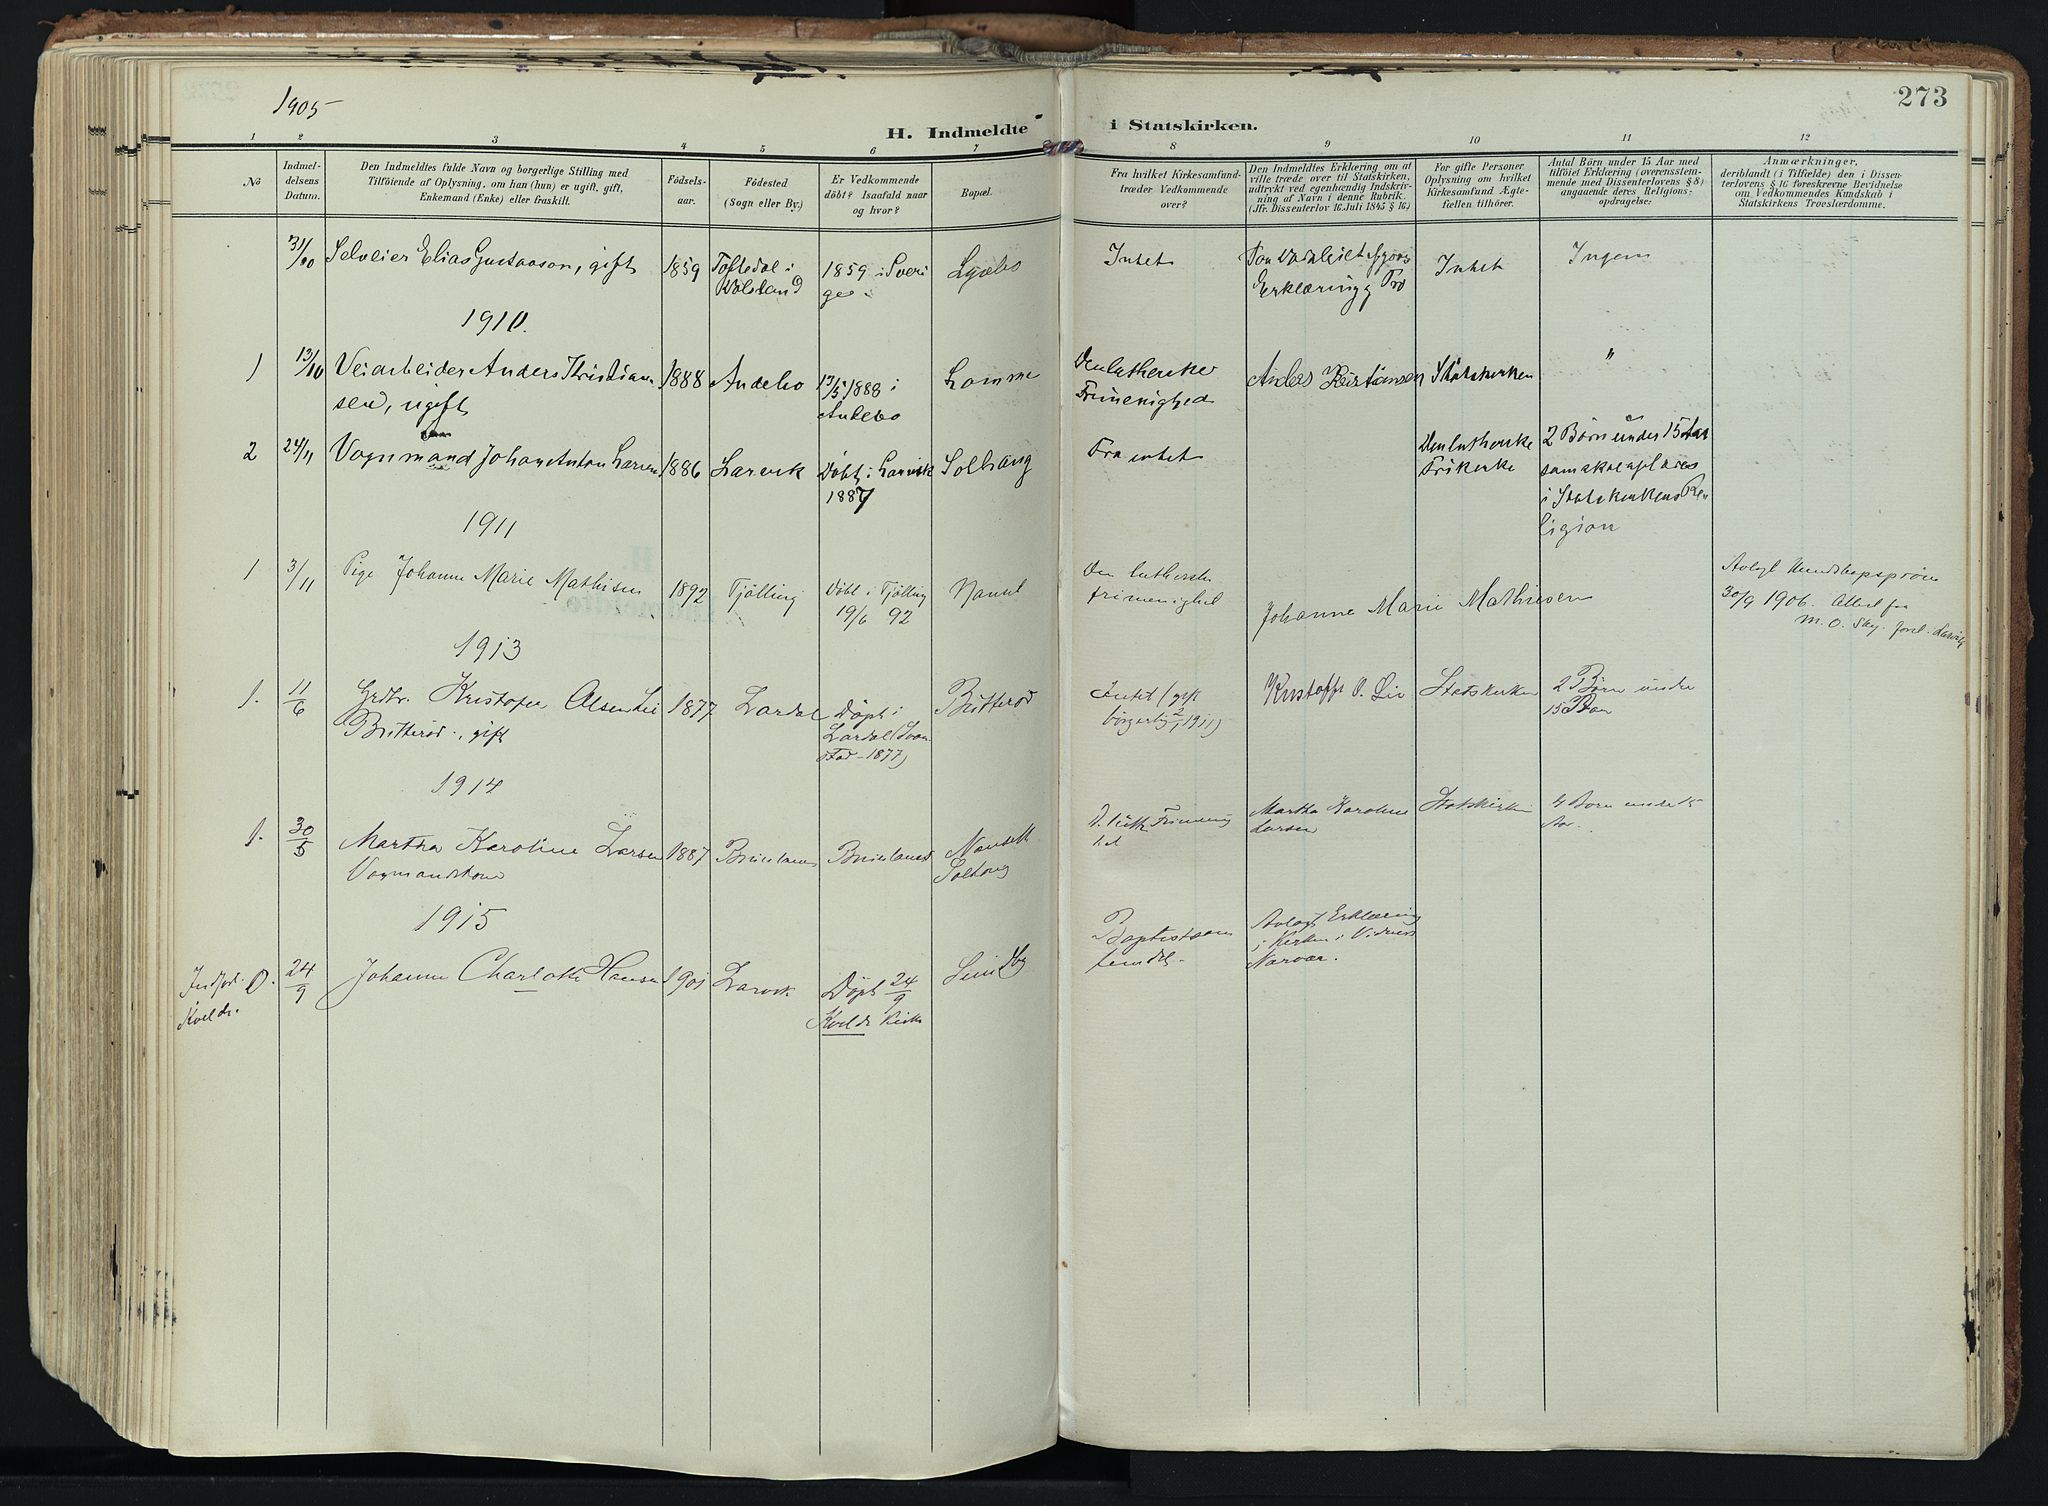 1905
273
H. Indmeldte i Statskirken.
1 2 3 4 5 6 7 8 9 10 11 12
No
Indmel-
delsens
Datum.
Den Indmeldtes fulde Navn og borgerlige Stilling med
Tilföiende af Oplysning, om han (hun) er ugift, gift,
Enkemand (Enke) eller fraskilt.
Födsels-
aar.
Födested
(Sogn eller By.)
Er Vedkommende
döbt? Isaafald naar
og hvor?
Bopæl.
Fra hvilket Kirkesamfund-
træder Vedkommende
over?
Den Indmeldtes Erklæring om at
ville træde over til Statskirken,
udtrykt ved egenhændig Indskriv-
ning af Navn i denne Rubrik.
(Jfr. Dissenterlov 16. Juli 1845 § 16.)
For gifte Personer
Oplysning om hvilket
Kirkesamfund Ægte-
fællen tilhörer.
Antal Börn under 15 Aar med
tilföiet Erklæring (overensstem-
mende med Dissenterlovens § 8)
angaaende deres Religions-
opdragelse:
Anmærkninger,
deriblandt (i Tilfælde) den i Dissen-
terlovens § 16 foreskrevne Bevidnelse
om Vedkommendes Kundskab i
Statskirkens Troeslærdomme.
31/10
Selveier Elias Gustavson, gift
1859
Toftedal i
Dalsland
1859 i Sveri
ge.
Lysebo
Intet
Erklæring
Intet
Ingen
1910.
1
13/10
Veiarbeider Anders Kristian-
sen, ugift
1888
Andebo
13/5 1888 i
Andebo
Lamme
Den lutherske
Frimenighed
Anders Kristiansen
Statskirken
"
2
24/11
Vognmand Johan Anton Larsen
1886
Larvik
Döbt i Larvik
1887
Solhaug
Fra intet
Den lutherske
Frikirke
2 Börn under 15 Aar
som skal opl æres
i Statskirkens Re-
ligion
1911
1
3/11
Pige Johanne Marie Mathisen
1892
Tjölling
Döbt i Tjölling
19/6 92
Nanset
Den lutherske
frimenighet
Johanne Marie Mathisen
Avlagt Kundskapspröve
30/9 1906. Attest fra
M. O. Sky. forst. Larvik
1913
1.
11/6
Grdbr. Kristofer Olsen Lie
Britterød, gift
1877
Lardal
Döpt i
Lardal (Svar-
stad - 1877)
Britterød
Intet (gift
borgerlig 2/1 1911)
Kristoffe O. Lie
Statskirken
2 Børn under
15 Aar
1914
1.
30/5
Martha Karoline Larsen
Vognmandskone
1887
Brunlanes
Brunlanes
Nanset
Solhaug
D. luth. Frimenig
het
Martha Karoline
Larsen
Statskirken
4 Børn under 15
Aar.
1915
Indfört
Kvelde.
0.
24/9
Johanne Charlotte Hansen
1901
Larvik
Döpt 24/9
Kvelde Kirke
Lindby
Baptistsam
fundet.
Avlagt Erklæring
i Kirken i Vidners
Nærvær.